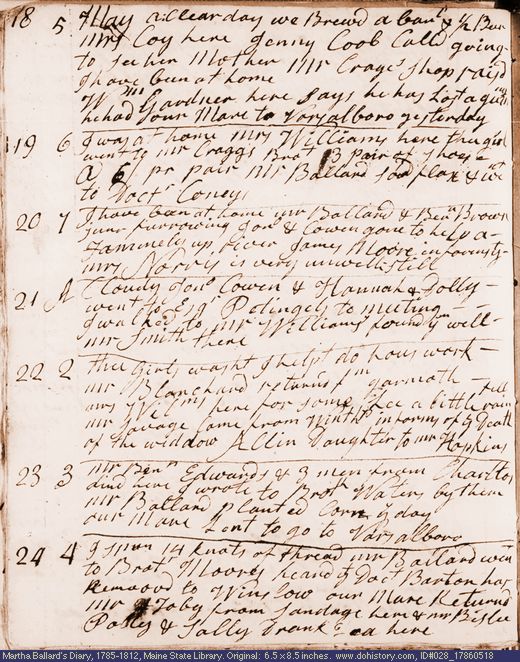 18 5 May a Clear day we Brewd a bar
Mrs Coy here Jenny Coob Calld going
to see her Mother Mr Crages Shop raisd
I have been at home
Wm Gardner here Says he has Lost a
he had Your Mare to Varsalboro yesterday
19 6 I was at home Mrs Williams here the girls
went to Mr Craggs Brot 3 pair of shoes
@ 6/ pr pair Mr Ballard sowd flax &
to Doctr Conys
20 7 I have been at home mr Ballard & Benn Brown
been furrowing Jona & Cowen gone to help a
up river James Moore in
mrs Norris is very unwell still
21 A Cloudy Jona Cowen & Hannah & Dolly
went to Esqr Petingels to meeting
I walked to mr Williams found ym well
mr Smith there
22 2 thee girls washt I help do hous work
mr Blanchard returnd fm yarmoth
mrs Wilms here for some a little rain fell
mr Savage Came from Winthp informs of ye Death
of the widdow Allin Daughter to mr Hopkins
23 3 mr Benn Edwards & 3 men from Charlton
dind here I wrote to Brot Waters by them
mr Ballard Planted Corn ys day
our Mare Lent to go to Varsalboro
24 4 I spun 14 knots of thread mr Ballard went
to Brot Moores heard ye Doct Barton has
removd to Winslow our Mare Returnd
Mr Toby from Sandage here & mr Bisbe
Polly & Sally Drank Tea here
Martha Ballard's Diary, 1785-1812, Maine State Library. Original: 6.5 x 8.5 inches. www.dohistory.com, ID#028_17860518